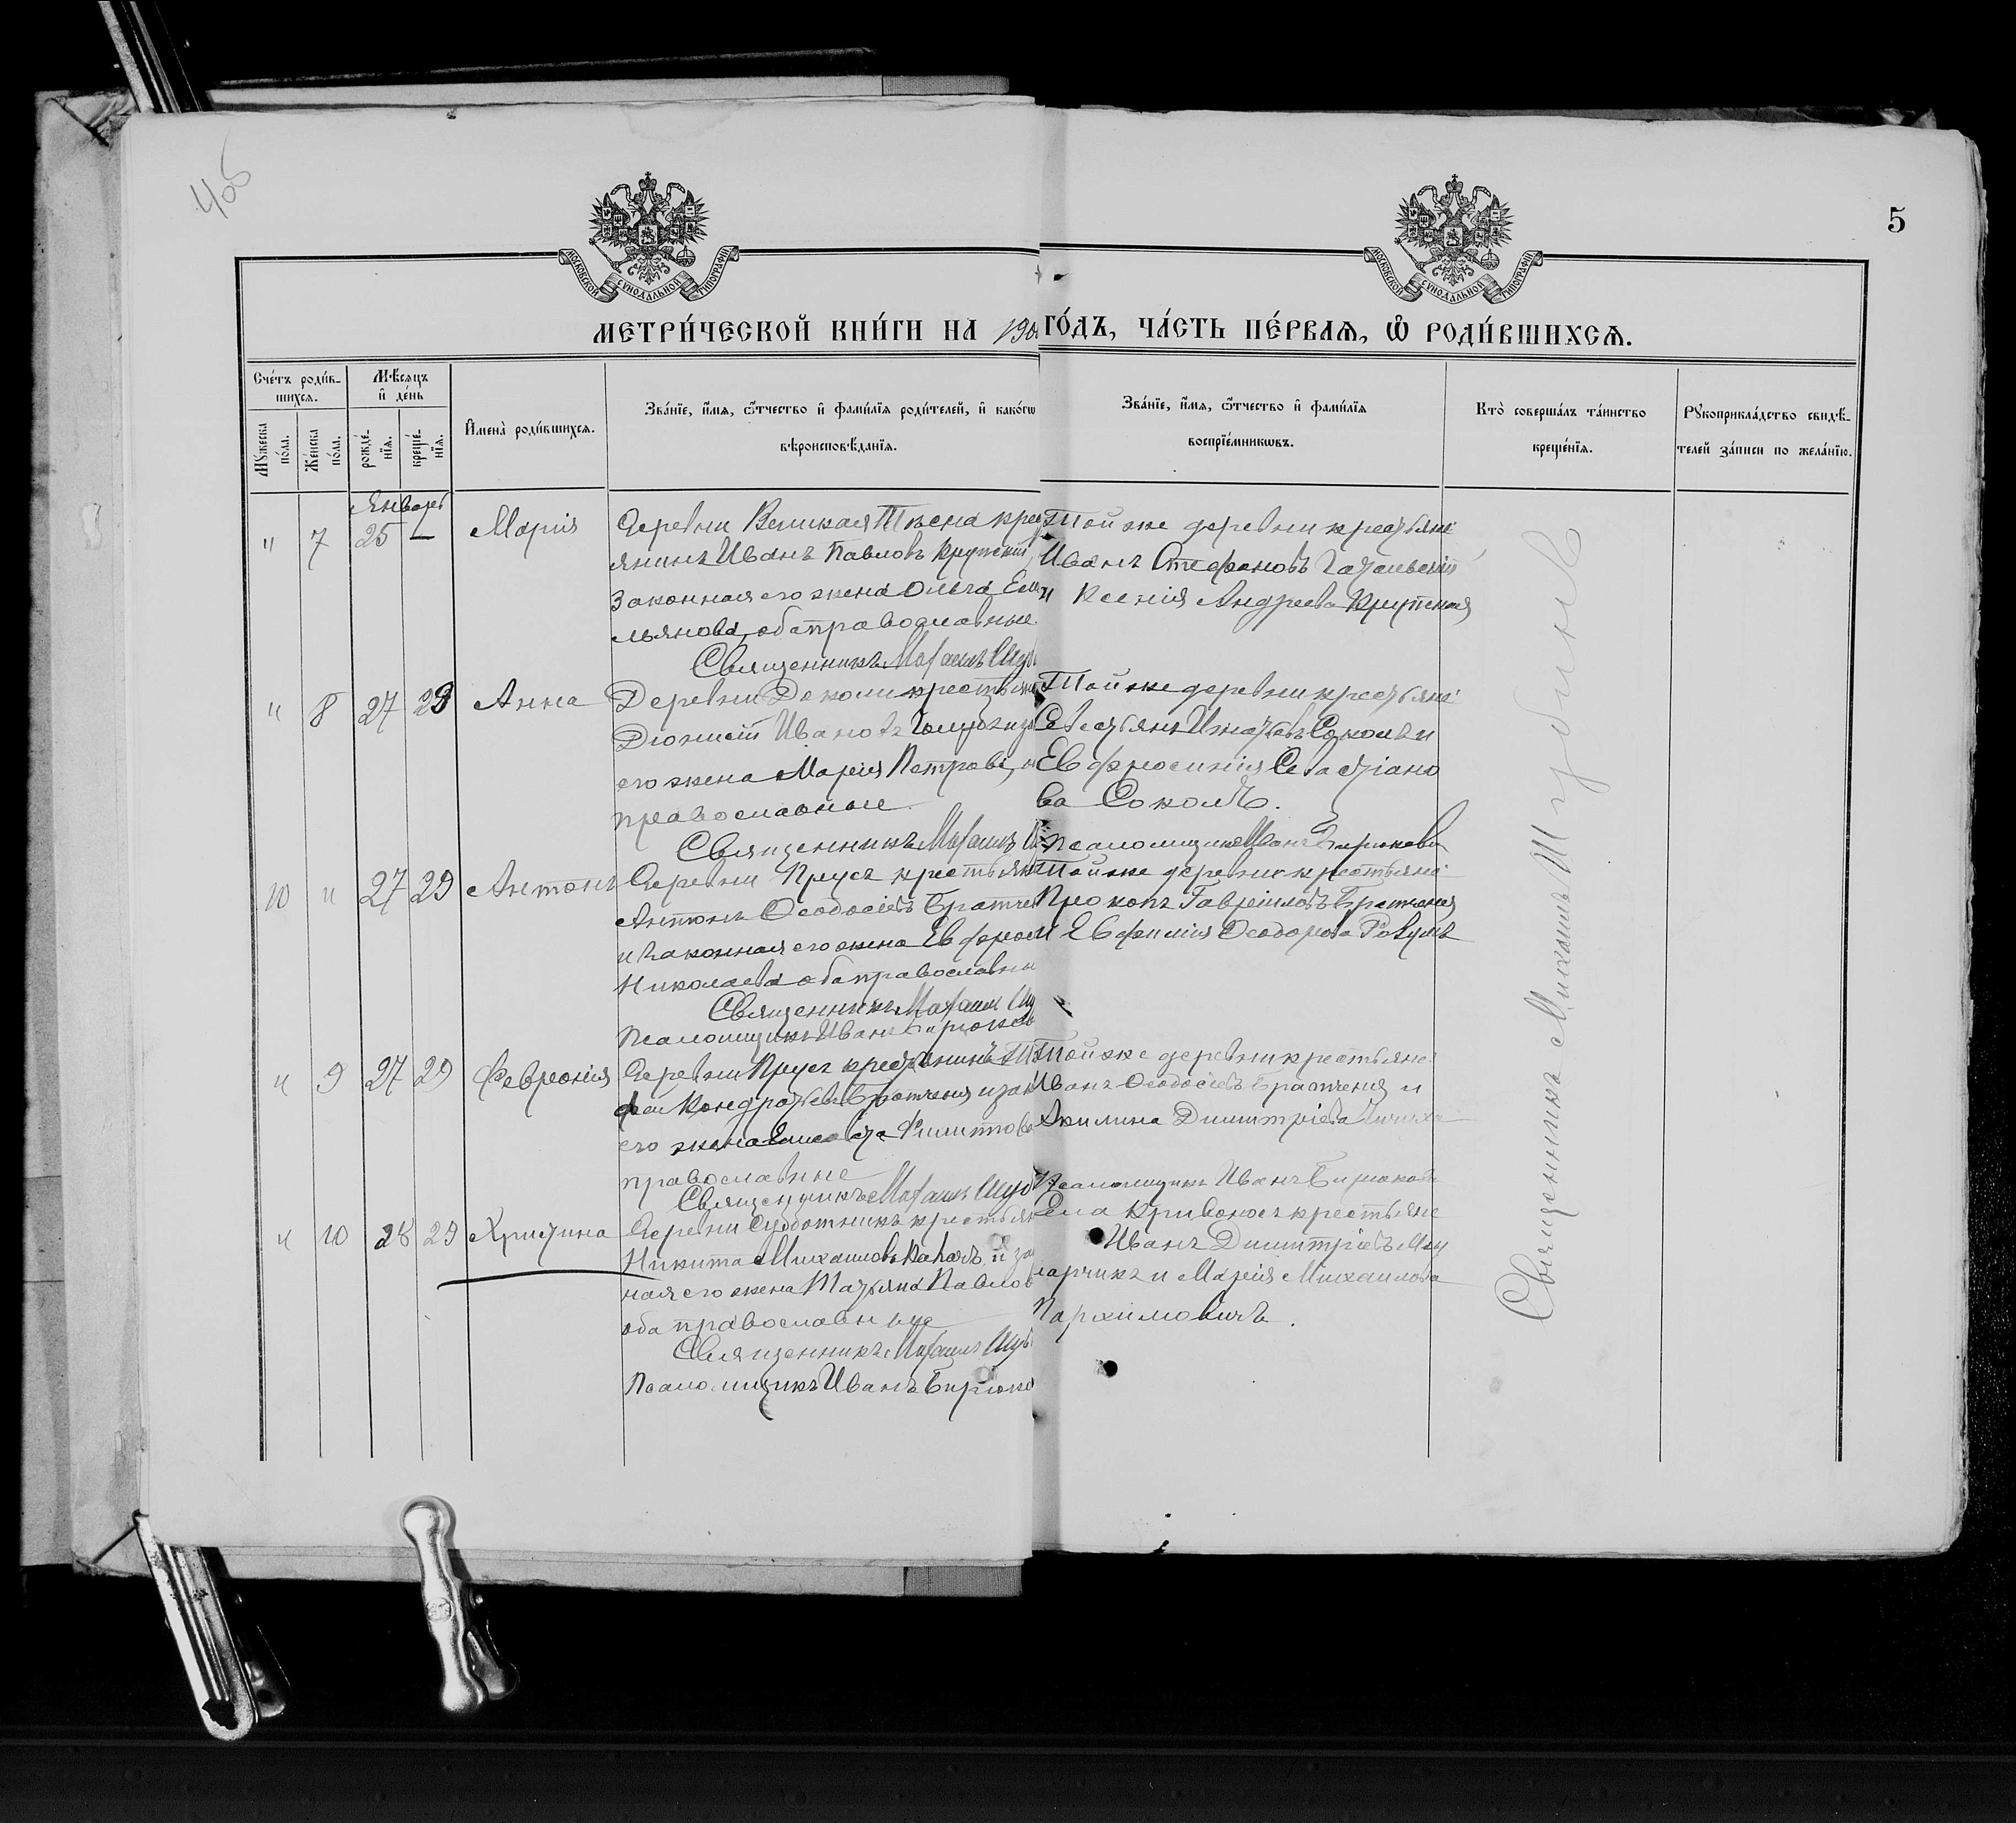 406
5
МОСКОВСКОЙ СѴНОДАЛЬНОЙ ТИПОГРАФІИ
МОСКОВСКОЙ СѴНОДАЛЬНОЙ ТИПОГРАФІИ
МЕТРИ́ЧЕСКОЙ КНИ́ГИ НА 190
ГО́ДЪ, ЧА́СТЬ ПЕ́РВАѦ, Ѿ РОДИ́ВШИХСѦ.
Сче́тъ роди́в-
шихсѧ.
Мꙋ́жеска
по́ла.
Же́нска
по́ла.
Мѣ́сѧцъ
и҆ де́нь
рожде́-
нїѧ.
креще́-
нїѧ.
И҆мена̀ роди́вшихсѧ.
Зва́нїе, и҆́мѧ, ѻ҆́тчество и҆ фами́лїѧ роди́телей, и҆ како́гѡ
вѣроисповѣ́данїѧ.
Зва́нїе, и҆́мѧ, ѻ҆́тчество и҆ фами́лїѧ
воспрїе́мникѡвъ.
Кто̀ соверша́лъ та́инство
креще́нїѧ.
Рꙋкоприкла́дство свидѣ́-
телей за́писи по жела́нїю.
Январь
" 7 25 — Марія
Деревни Великая Плесна крес
янинъ Иванъ Павловъ Крупскій
законная его жена Ольга Еме
льянова, оба православные.
Священникъ Михаилъ Шуб
Той же деревни крестьяне
Иванъ Стефановъ
и Ксенія Андреева Крупская
" 8 27 29 Анна
Деревни крестьяни
Діонисій Ивановъ
его жена Марія Петрова, и
православные.
Священникъ Михаилъ
Той же деревни крестьяне
Севастьянъ Игнатьевъ Соколъ и
Евфросинія Севастіано
ва Соколъ.
Псаломщикъ Иванъ Бирюковъ
10 " 27 29 Антонъ
Деревни Прусъ крестьяни
Антонъ Ѳеодосіевъ Братченя
и законная его жена Евфрос
Николаева оба православны
Священникъ Михаилъ Шу
Псаломщикъ Иванъ Бирюков
Той же деревни крестьяне
Прокопъ Гавріиловъ Братченя
и Евфимія Ѳеодорова
" 9 27 29 Февронія
Деревни Прусъ крестьянинъ Ти
фей Кондратьевъ Братченя и зак
его жена Елисавета Филиппова
православные
Священникъ Михаилъ Шуб
Той же деревни крестьяне
Иванъ Ѳеодосіевъ Братченя и
Акилина Димитріева
Псаломщикъ Иванъ Бирюковъ
" 10 28 29 Христина
Деревни Субботникъ крестьян
Никита Михаиловъ и за
ная его жена Татьяна Павлов
оба православные
Священникъ Михаилъ Шуб
Псаломщикъ Иванъ Бирюко
Села Кривоносъ крестьяне
Иванъ Димитріевъ Мл
ларчикъ и Марія Михаилова
Пархимовичъ.
Священникъ Михаилъ Шубинъ